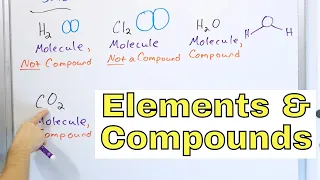 H₂
Molecule,
Not Compound
Cl₂
Molecule
Not a Compound
H₂O
Molecule,
Compound
H H
CO₂
Molecule,
Compound
Elements &
Compounds